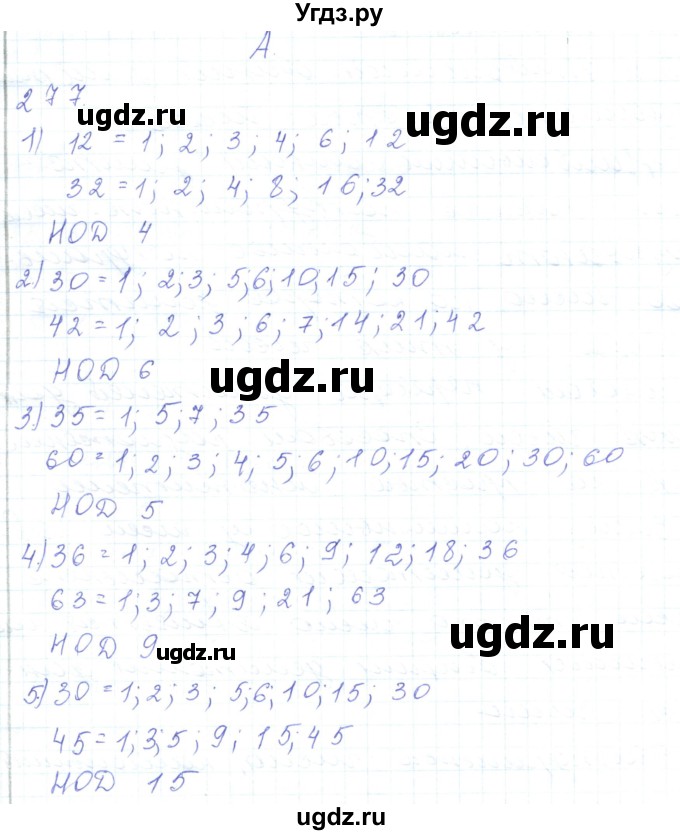 Угдз.ру
А.
277
1) 12 = 1; 2; 3; 4; 6; 12
32 = 1; 2; 4; 8; 16; 32
НОД 4
2) 30 = 1; 2; 3; 5; 6; 10; 15; 30
42 = 1; 2; 3; 6; 7; 14; 21; 42
НОД 6
3) 35 = 1; 5; 7; 35
60 = 1; 2; 3; 4; 5; 6; 10; 15; 20; 30; 60
НОД 5
4) 36 = 1; 2; 3; 4; 6; 9; 12; 18; 36
63 = 1; 3; 7; 9; 21; 63
НОД 9
5) 30 = 1; 2; 3; 5; 6; 10; 15; 30
45 = 1; 3; 5; 9; 15; 45
НОД 15
ugdz.ru
ugdz.ru
ugdz.ru
ugdz.ru
ugdz.ru
ugdz.ru